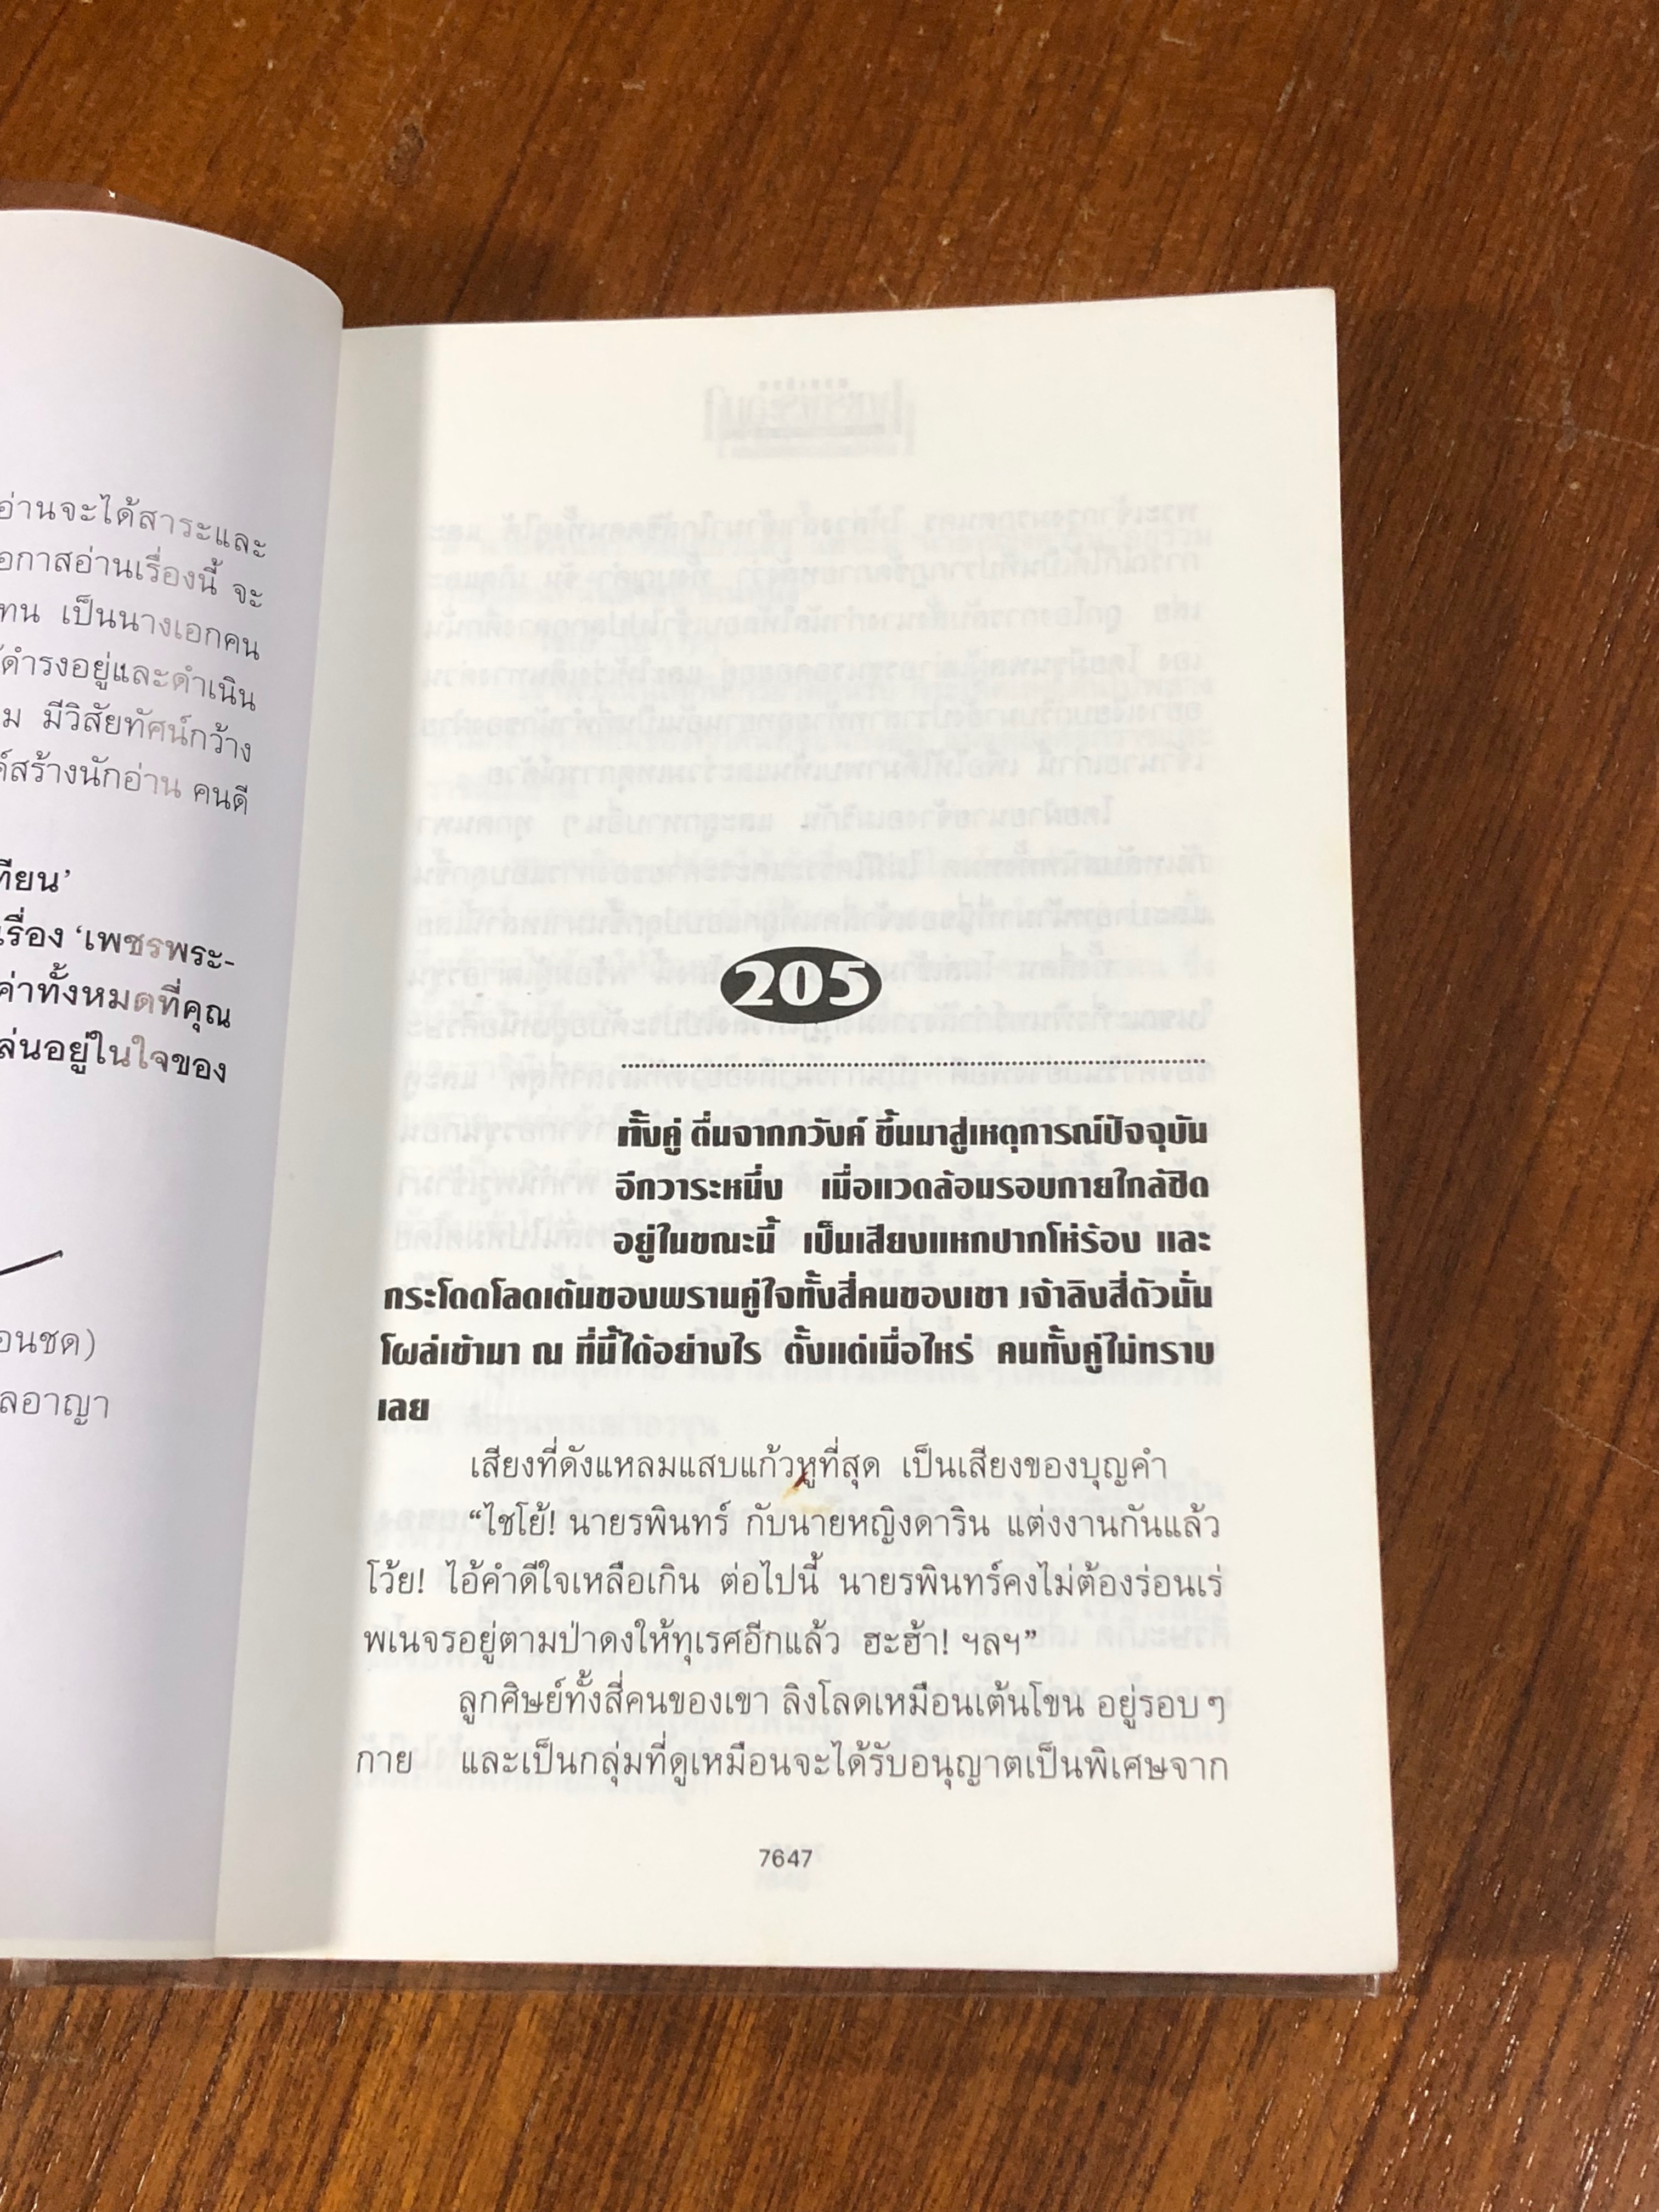 อ่านจะได้สาระและ
อกาสอ่านเรื่องนี้ จะ
ทน เป็นนางเอกคน
ดำรงอยู่และดำเนิน
ม มีวิสัยทัศน์กว้าง
สร้างนักอ่าน คนดี
ทียน’
เรื่อง ‘เพชรพระ-
ค่าทั้งหมดที่คุณ
ล่นอยู่ในใจของ
อนชด)
ลอาญา
205
ทั้งคู่ ตื่นจากภวังค์ ขึ้นมาสู่เหตุการณ์ปัจจุบัน
อีกวาระหนึ่ง เมื่อแวดล้อมรอบกายใกล้ชิด
อยู่ในขณะนี้ เป็นเสียงแหกปากโห่ร้อง และ
กระโดดโลดเต้นของพรานคู่ใจทั้งสี่คนของเขา เจ้าลิงสี่ตัวนั่น
โผล่เข้ามา ณ ที่นี้ได้อย่างไร ตั้งแต่เมื่อไหร่ คนทั้งคู่ไม่ทราบ
เลย
เสียงที่ดังแหลมแสบแก้วหูที่สุด เป็นเสียงของบุญคำ
“ไชโย้! นายรพินทร์ กับนายหญิงดาริน แต่งงานกันแล้ว
โว้ย! ไอ้คำดีใจเหลือเกิน ต่อไปนี้ นายรพินทร์คงไม่ต้องร่อนเร่
พเนจรอยู่ตามป่าดงให้ทุเรศอีกแล้ว ฮะฮ้า! ฯลฯ”
ลูกศิษย์ทั้งสี่คนของเขา ลิงโลดเหมือนเต้นโขน อยู่รอบๆ
กาย และเป็นกลุ่มที่ดูเหมือนจะได้รับอนุญาตเป็นพิเศษจาก
7647